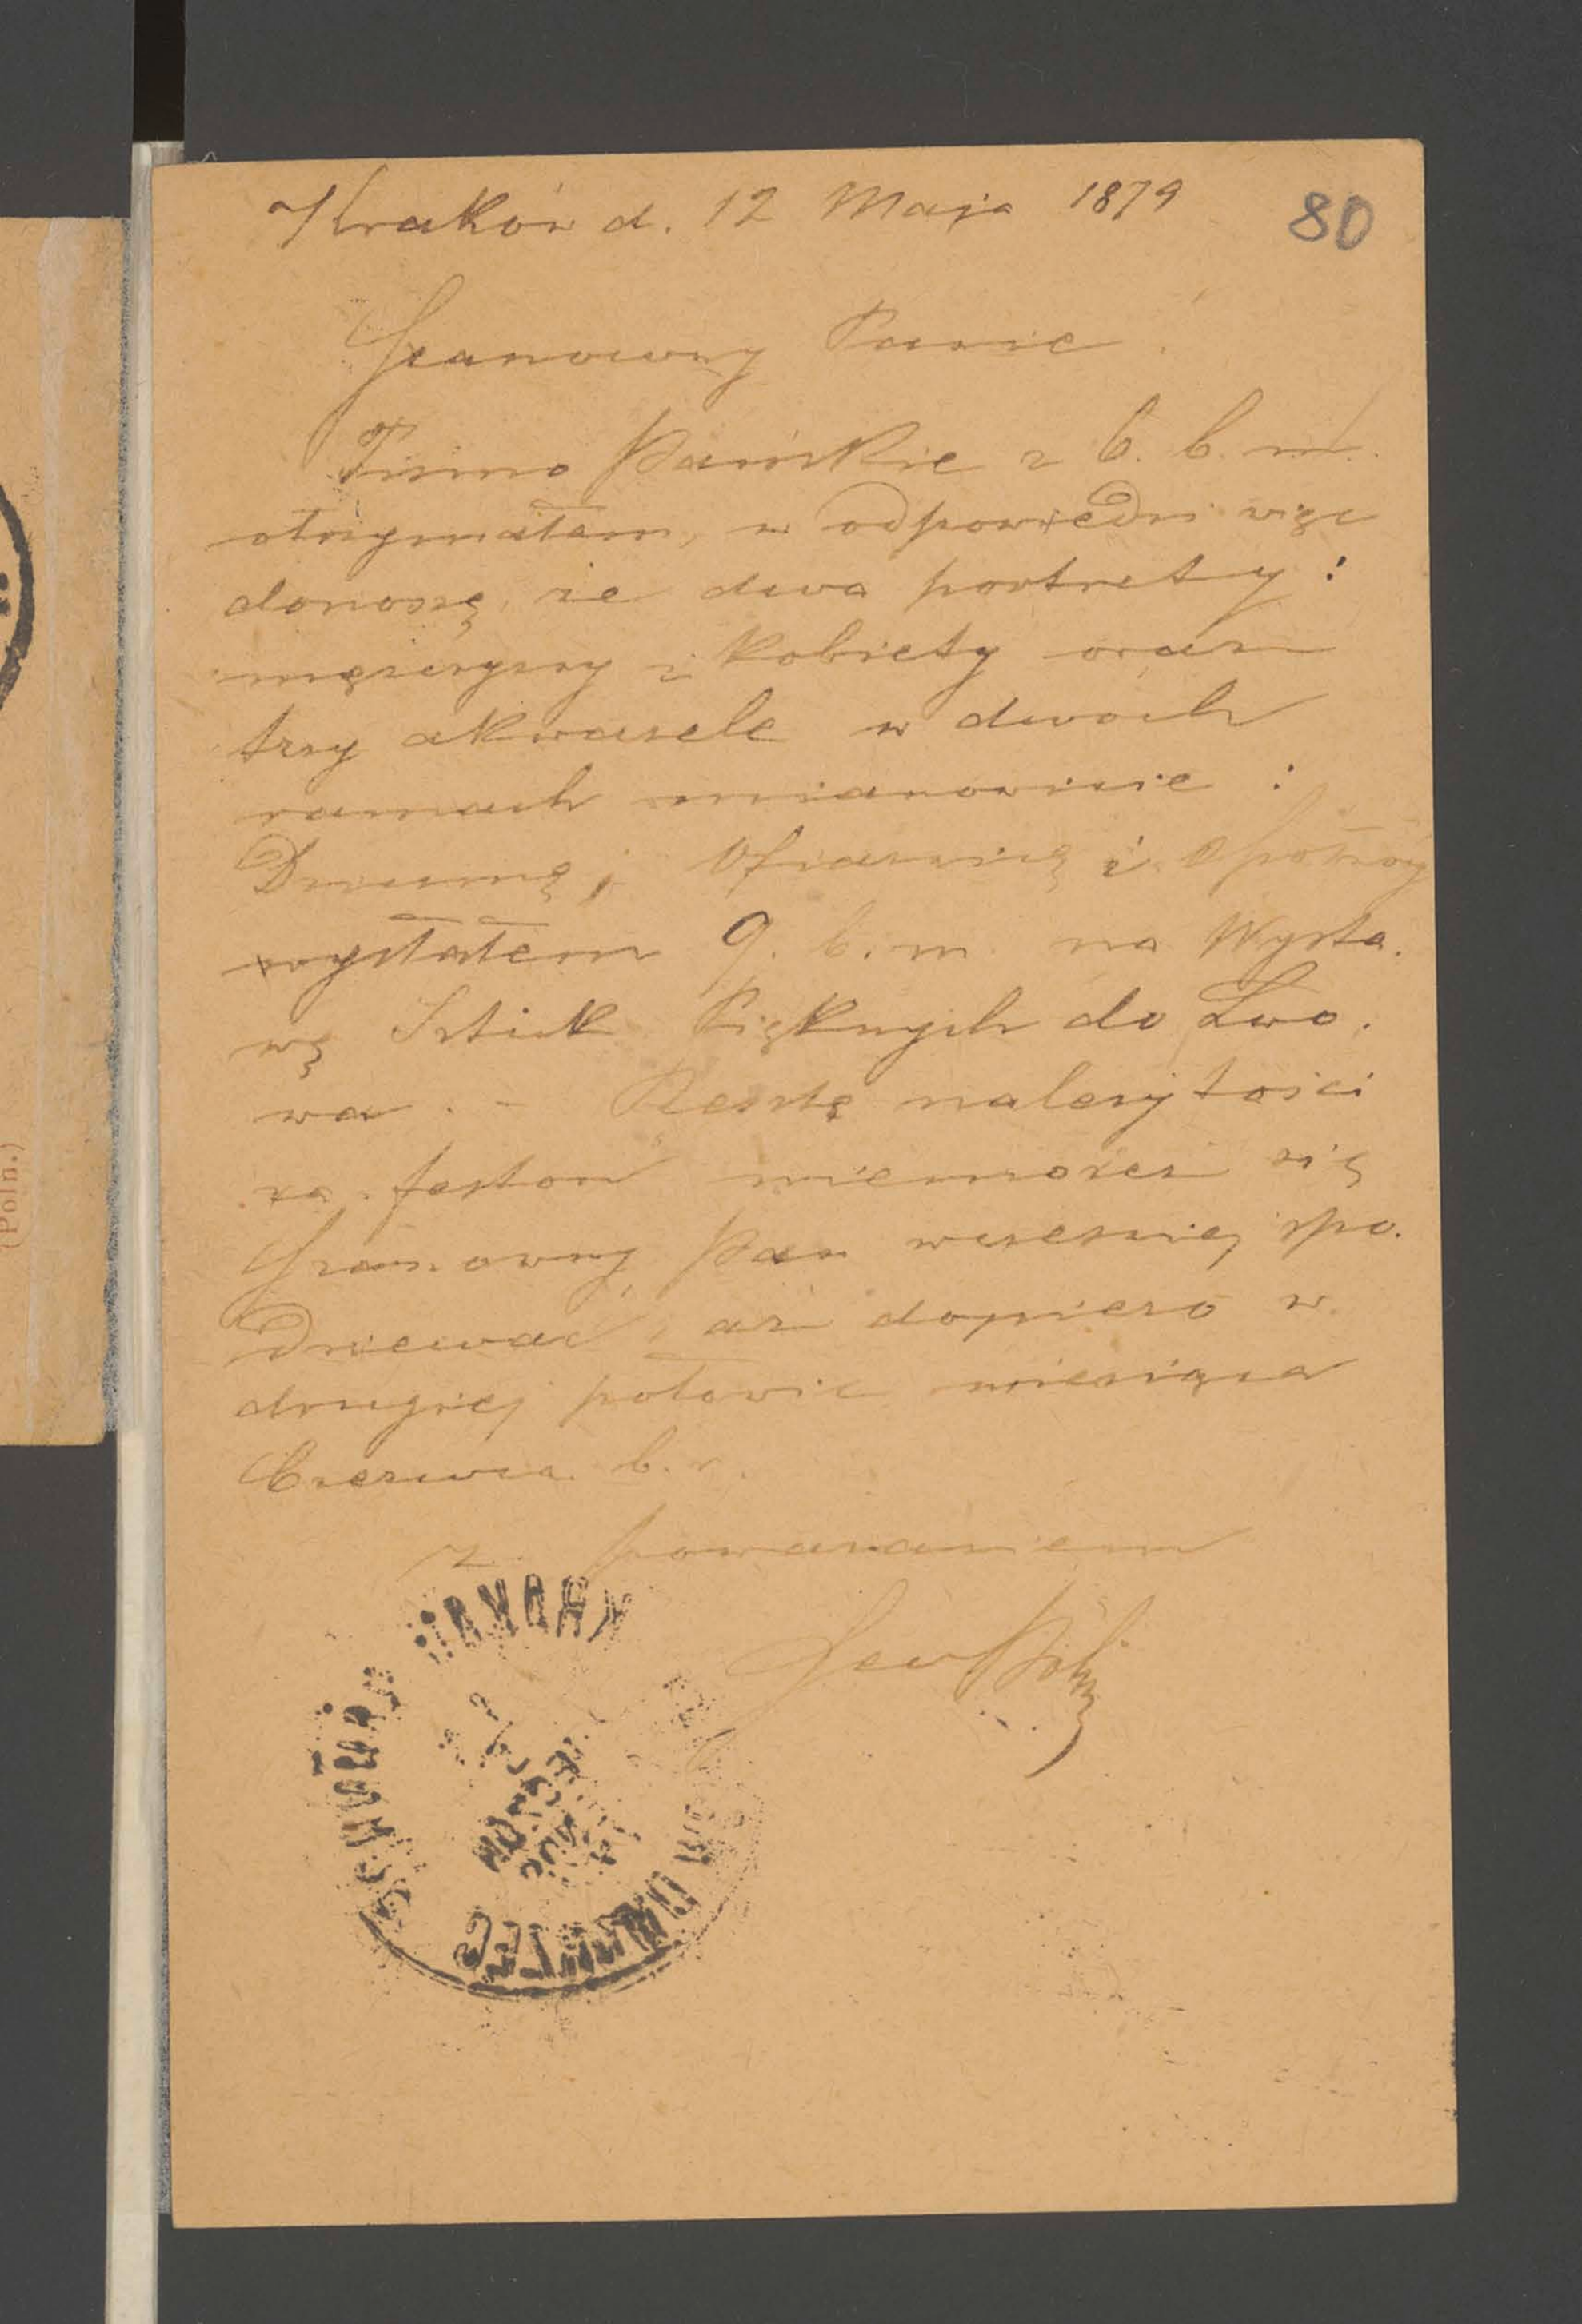 Kraków d. 12 Maja 1879
80
Szanowny Panie
Pismo Pańskie z 6. b. m.
otrzymałem, w odpowiedzi więc
donoszę, że dwa portrety:
mężczyzny i kobiety oraz
trzy akwarele w dwóch
ramach mianowicie:
Dziewannę, Ofiarnicę i
wysłałem 9. b. m. na Wysta.
wę Sztuk Pięknych do Lwo.
wa. – Resztę należytości
za feston niemożesz się
Szanowny Pan wcześniej spo.
dziewać, aż dopiero w
drugiej połowie miesiąca
Czerwca b. r.
z poważaniem
(Poln.)